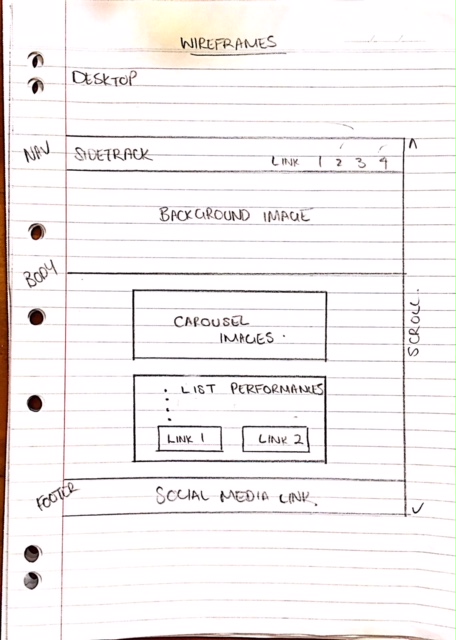 WIREFRAMES
DESKTOP
NAV
SIDETRACK
LINK 1 2 3 4
BACKGROUND IMAGE
BODY
CAROUSEL
IMAGES.
SCROLL.
. LIST PERFORMANCES
LINK 1
LINK 2
FOOTER
SOCIAL MEDIA LINK.